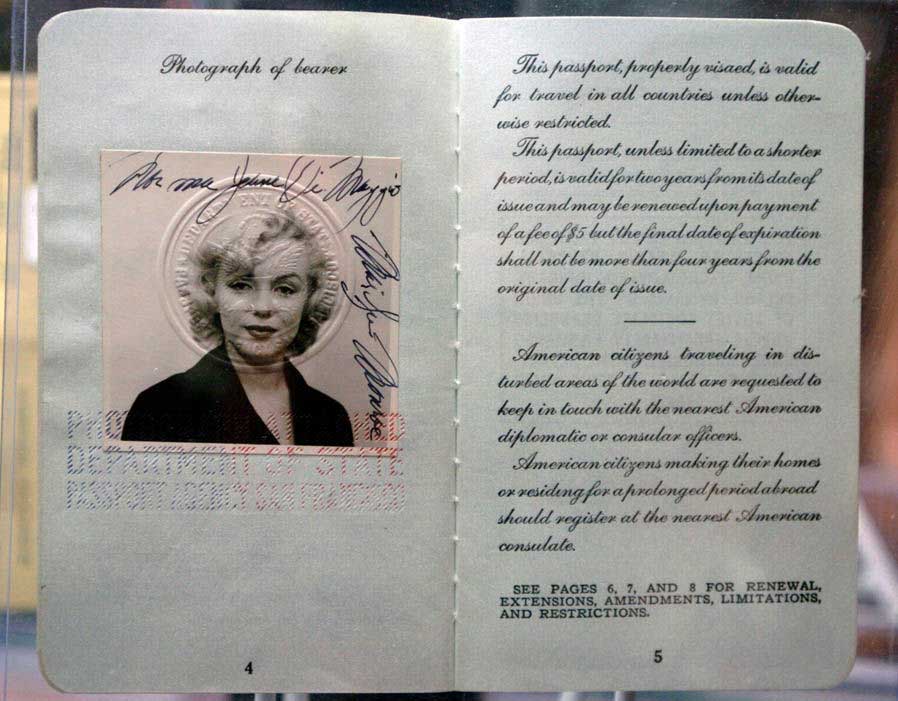 Photograph of bearer
Norma Jeane Di Maggio
Marilyn Monroe
DEPARTMENT OF STATE
PASSPORT AGENCY SAN FRANCISCO
4
This passport, properly visaed, is valid
for travel in all countries unless other-
wise restricted.
This passport, unless limited to a shorter
period, is valid for two years from its date of
issue and may be renewed upon payment
of a fee of $5 but the final date of expiration
shall not be more than four years from the
original date of issue.
American citizens traveling in dis-
turbed areas of the world are requested to
keep in touch with the nearest American
diplomatic or consular officers.
American citizens making their homes
or residing for a prolonged period abroad
should register at the nearest American
consulate.
SEE PAGES 6, 7, AND 8 FOR RENEWAL,
EXTENSIONS, AMENDMENTS, LIMITATIONS,
AND RESTRICTIONS.
5